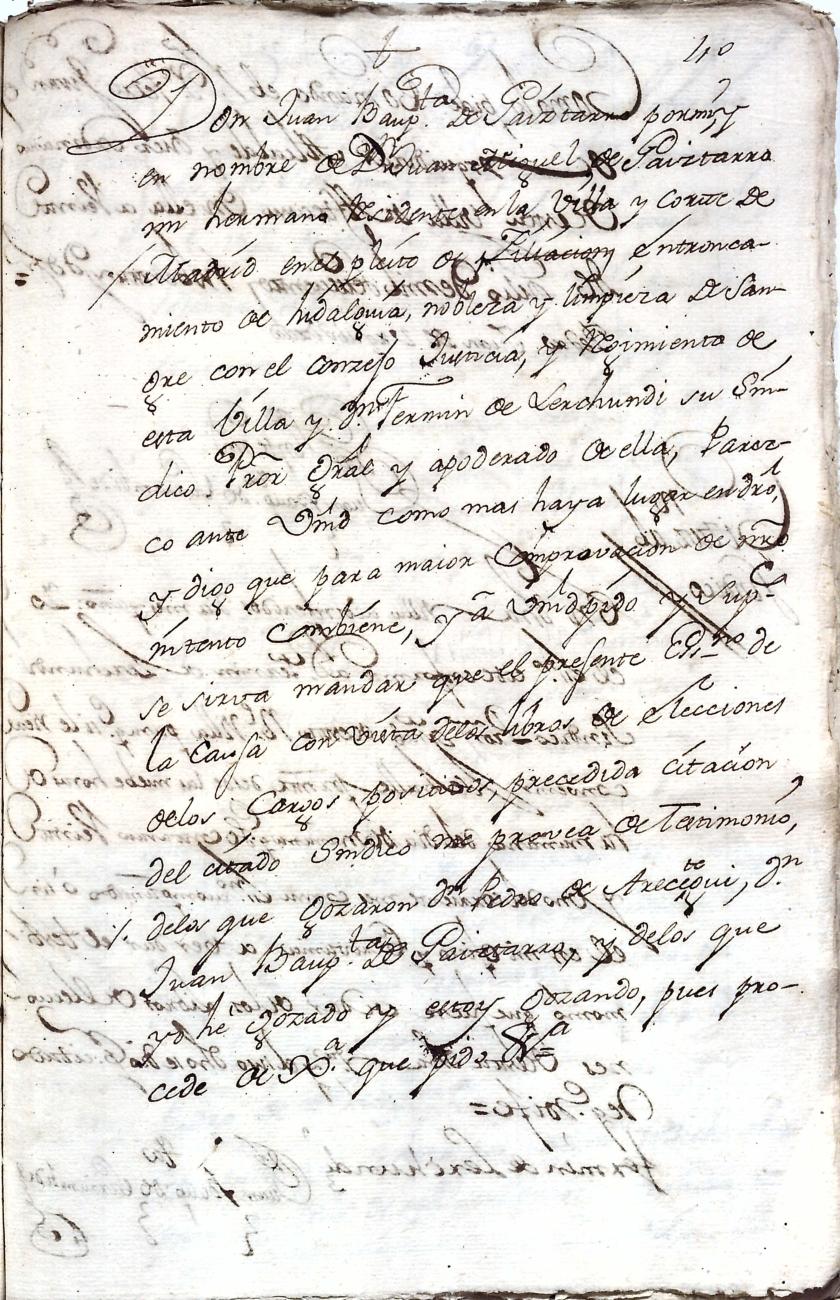 40
Don Juan Baupta. de Gaiztarro por mi, y
en nombre de Dn. Juan Miguel de Gaiztarro
mi hermano Residente en la Villa y corte de
Madrid en el pleito de Filiacion entronca-
miento de hidalguia, nobleza y limpieza de San-
gre con el conzejo Justicia, y Regimiento de
esta Villa y Dn. Fermin de Lerchundi su Sin-
dico Pror. Gral y apoderado de ella, Parez-
co ante Vmd como mas haya lugar en dro,
y digo que para maior Comprovacion de mro
intento Combiene, y a Vmd pido y Supco.
se sirva mandar que el presente Essno de
la Causa con vista delos libros de elecciones
delos Cargos posicios, precedida citacion
del citado Sindico me provea de Testimonio,
delos que Gozaron Dn. Pedro de Arecegui, Dn.
Juan Baupta. de Gaiztarro, y delos que
yo he Gozado y estoy Gozando, pues pro-
cede de Xa. que pido &a=